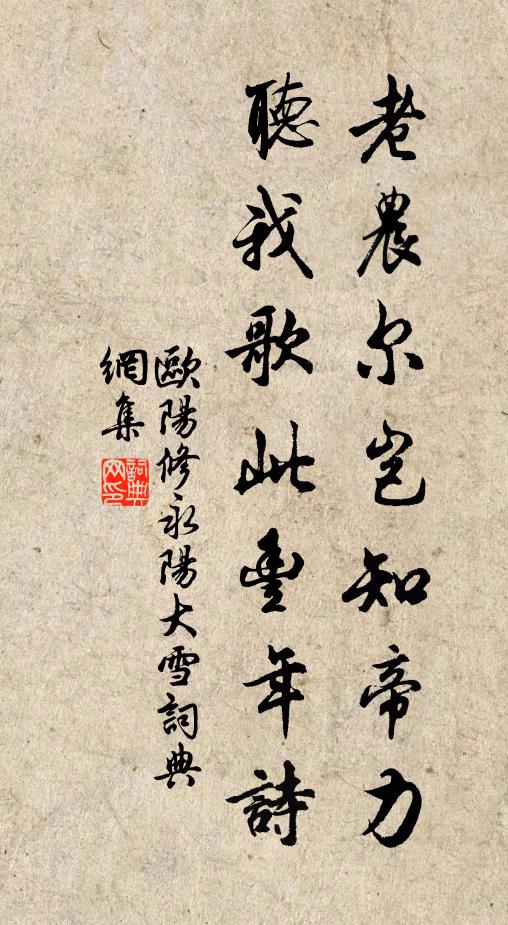 老農尔岂知帝力
聽我歌此豐年詩
歐陽修永陽大雪詞典
網集
詞典
网印